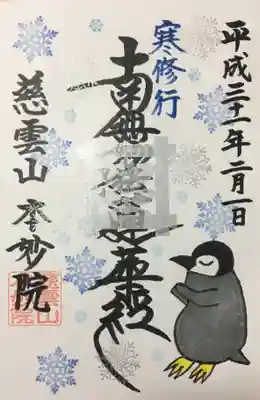 平成三十一年二月一日
寒修行
南無妙法蓮華経
慈雲山 妙院